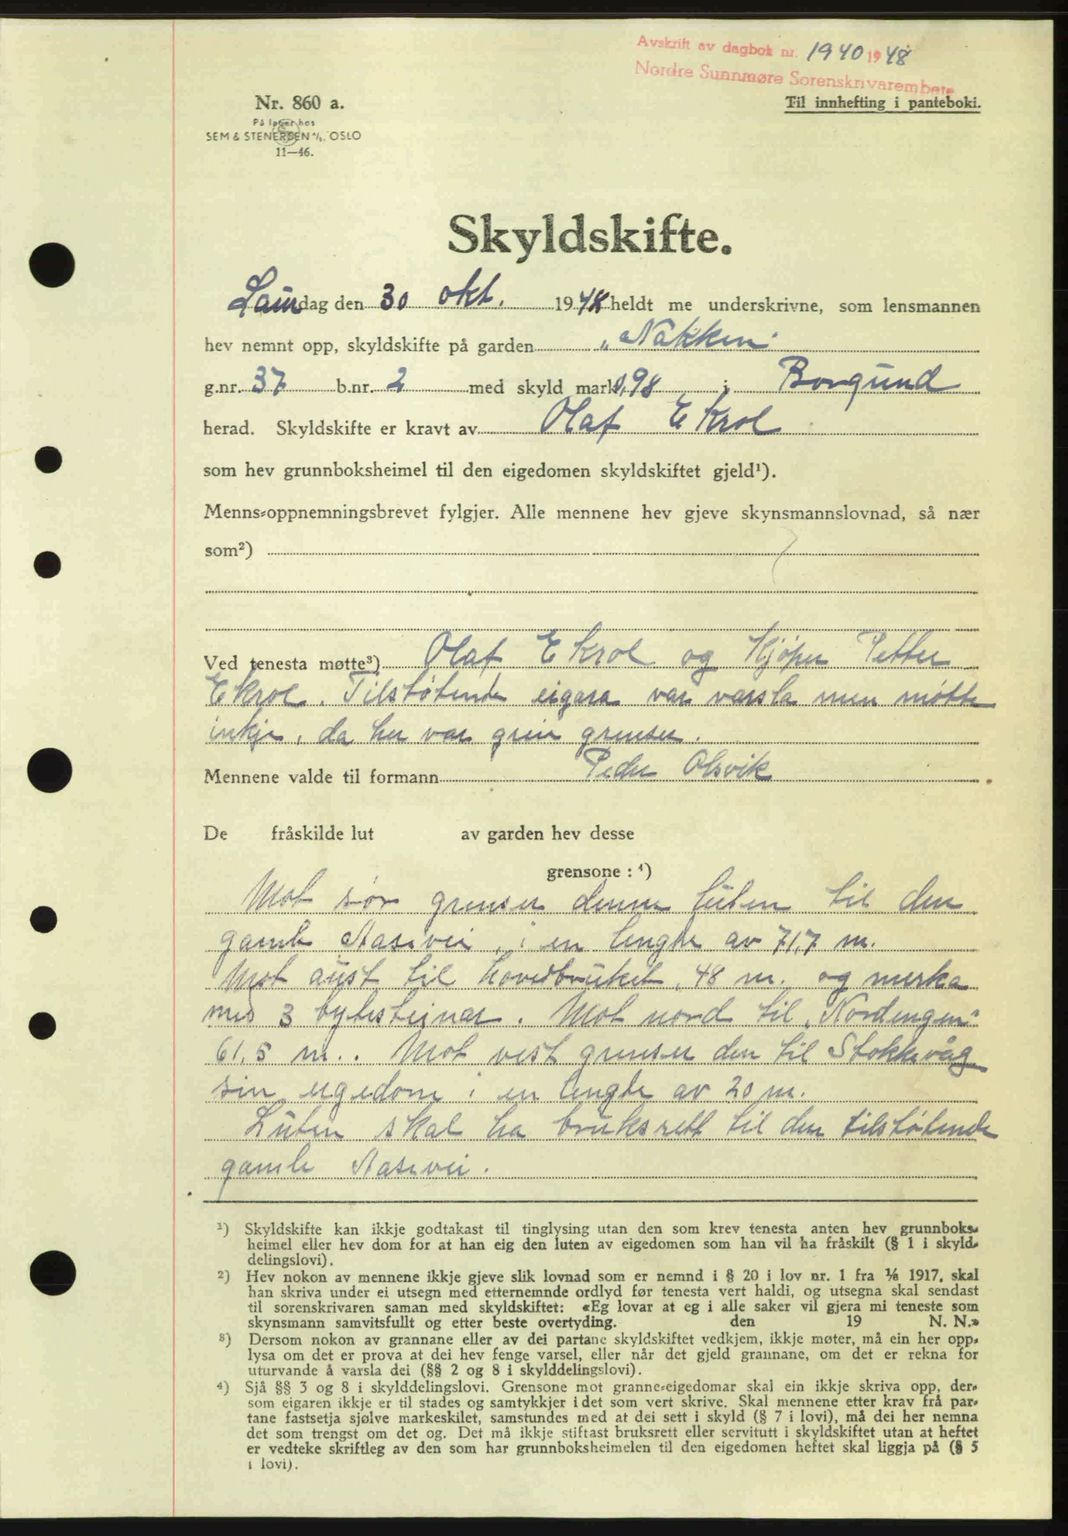 Avskrift av dagbok nr. 1940 1948
Nordre Sunnmøre Sorenskrivarembete
Nr. 860 a.
Til innhefting i panteboki.
På lager hos
SEM & STENERSEN A/S, OSLO
11—46.
Skyldskifte.
Laurdag den 30 okt. 1948 heldt me underskrivne, som lensmannen
hev nemnt opp, skyldskifte på garden „Nakken“
g.nr. 37 b.nr. 2 med skyld mark 0,98 i Borgund
herad. Skyldskifte er kravt av Olaf Ekrol
som hev grunnboksheimel til den eigedomen skyldskiftet gjeld¹).
Menns-oppnemningsbrevet fylgjer. Alle mennene hev gjeve skynsmannslovnad, så nær
som²)
Ved tenesta møtte³) Olaf Ekrol og Kjøper Petter
Ekrol. Tilstøtende eigara var varsla men møtte
inkje, da her var greie grenser.
Mennene valde til formann Peder Olsvik
De fråskilde lut av garden hev desse
grensone : ⁴)
Mot sør grenser denne luten til den
gamle Aasevei, i en lengde av 71,7 m.
Mot aust til hovedbruket, 48 m. og merka
med 3 bytesteinar. Mot nord til „Nordengen“
61,5 m.. Mot vest grenser den til Stokkevåg
sin eigedom i en lengde av 20 m.
Luten skal ha bruksrett til den tilstøtende
gamle Aasevei.
¹) Skyldskifte kan ikkje godtakast til tinglysing utan den som krev tenesta anten hev grunnboks-
heimel eller hev dom for at han eig den luten av eigedomen som han vil ha fråskilt (§ 1 i skyld-
delingslovi).
²) Hev nokon av mennene ikkje gjeve slik lovnad som er nemnd i § 20 i lov nr. 1 fra ⅙ 1917, skal
han skriva under ei utsegn med etternemnde ordlyd før tenesta vert haldi, og utsegna skal sendast
til sorenskrivaren saman med skyldskiftet: «Eg lovar at eg i alle saker vil gjera mi teneste som
skynsmann samvitsfullt og etter beste overtyding. den 19 N. N.»
³) Dersom nokon av grannane eller av dei partane skyldskiftet vedkjem, ikkje møter, må ein her opp-
lysa om det er prova at dei hev fenge varsel, eller når det gjeld grannane, om det er rekna for
uturvande å varsla dei (§§ 2 og 8 i skylddelingslovi).
⁴) Sjå §§ 3 og 8 i skylddelingslovi. Grensone mot granne-eigedomar skal ein ikkje skriva opp, der-
som eigaren ikkje er til stades og samtykkjer i det som vert skrive. Skal mennene etter krav frå par-
tane fastsetja sjølve markeskilet, samstundes med at dei sett i skyld (§ 7 i lovi), må dei her nemna
det som trengst om det og. Det må ikkje stiftast bruksrett eller servitutt i skyldskiftet utan at heftet
er vedteke skriftleg av den som har grunnboksheimelen til den eigedomen heftet skal liggja på (§ 5
i lovi).